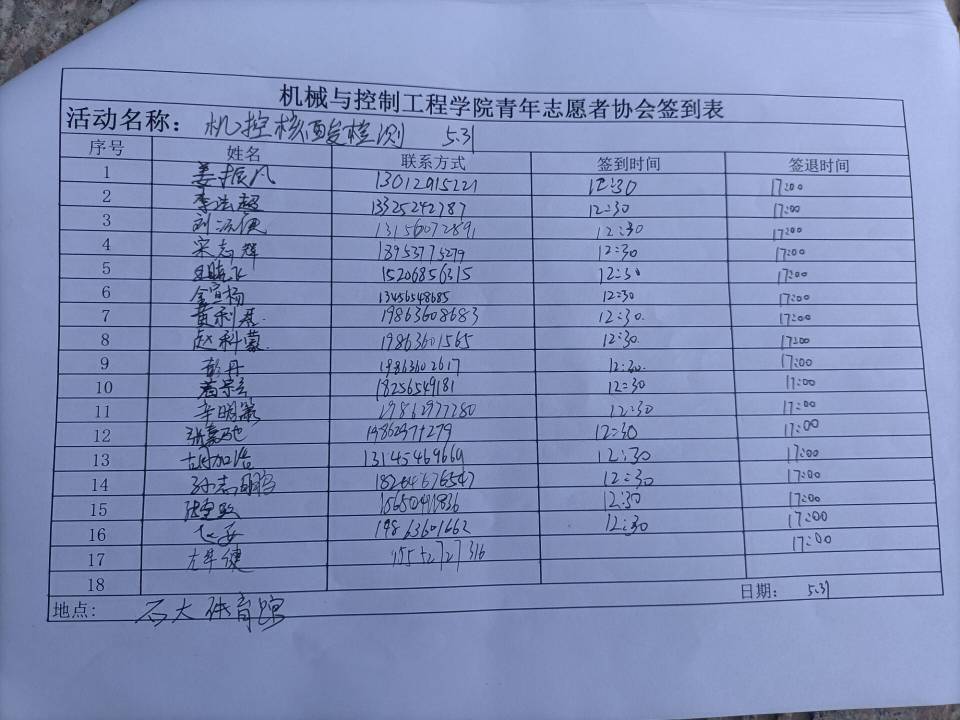 机械与控制工程学院青年志愿者协会签到表
活动名称： 机控核酸检测 5.31
序号 姓名 联系方式 签到时间 签退时间
1 姜振凡 13012915221 12:30 17:00
2 李浩超 13325242787 12:30 17:00
3 刘 13156072891 12:30 17:00
4 宋志辉 18953775279 12:30 17:00
5 15206856315 12:30 17:00
6 金宣杨 13456548685 12:30 17:00
7 黄利君 19863608683 12:30 17:00
8 赵科蒙 19863601565 12:30 17:00
9 彭丹 19863602617 12:30 17:00
10 18256549181 12:30 17:00
11 辛明策 19862977280 12:30 17:00
12 12:30 17:00
13 胡加浩 13145469669 12:30 17:00
14 孙志鹏 18264676547 12:30 17:00
15 12:30 17:00
16 19863601662 12:30 17:00
17 17:00
18
地点: 石大体育馆 日期： 5.31